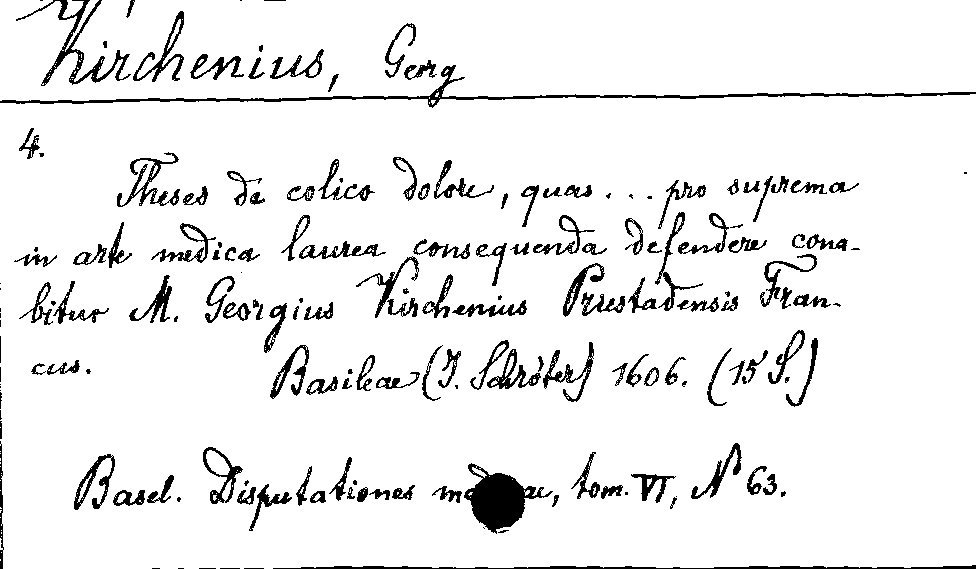 Kirchenius, Georg
4.
Theses de colico dolore, quas ... pro suprema
in arte medica laurea consequenda defendere cona-
bitur M. Georgius Kirchenius Prustadensis Fran-
cus.
Basileae (J. Schröter) 1606. (15 S.)
Basel. Disputationes tom. VI, No 63.